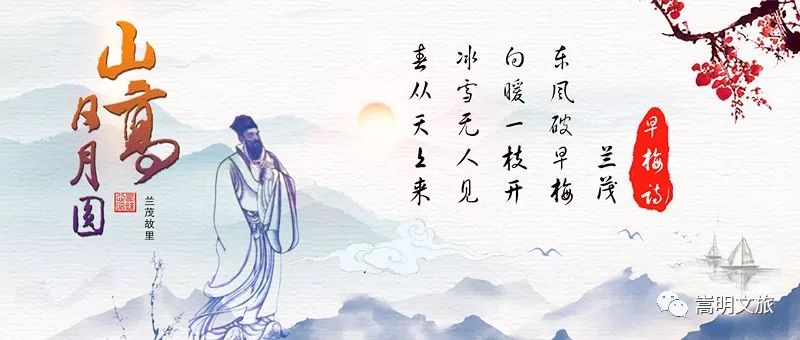 山高
日月圆
兰茂故里
早梅诗
兰茂
东风破早梅
向暖一枝开
冰雪无人见
春从天上来
嵩明文旅